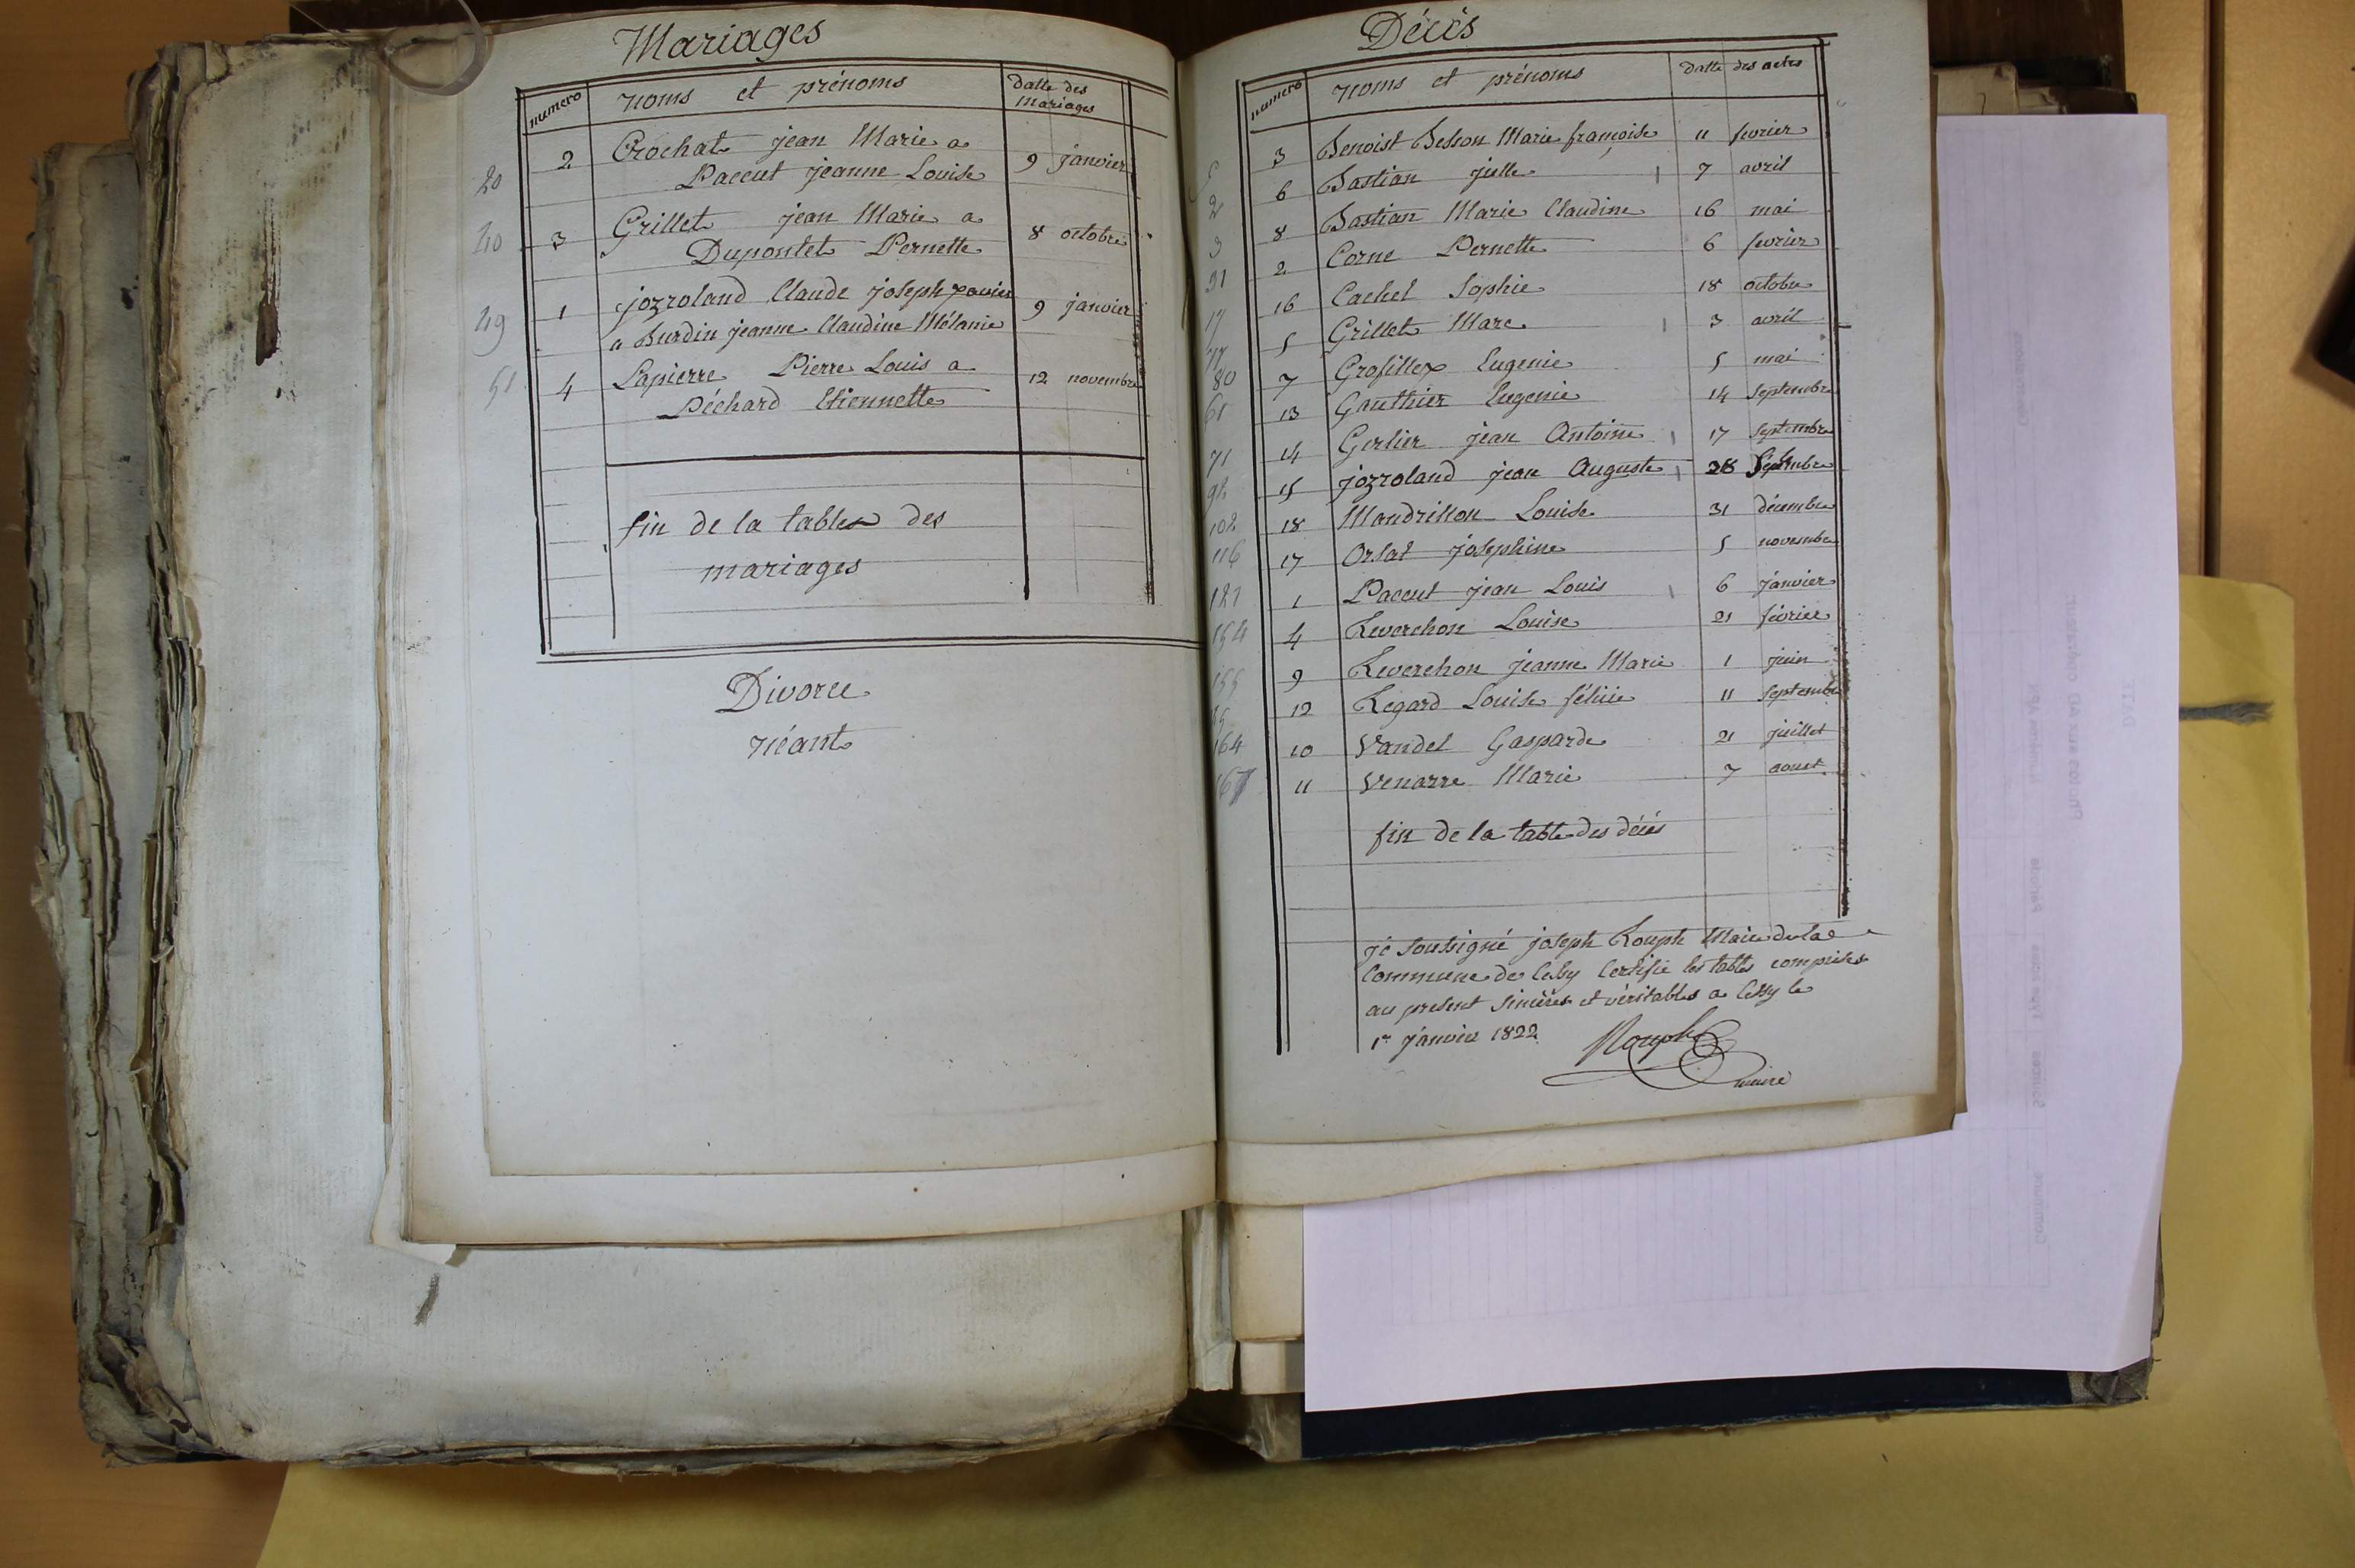 Mariages
numero noms et prénoms datte des mariages
20 2 Crochat jean Marie a
Paccut jeanne Louise 9 janvier
40 3 Grillet jean Marie a
Dupontet Pernette 8 octobre
49 1 jozroland Claude joseph xavier
a Burdin jeanne Claudine Mélanie 9 janvier
51 4 Lapierre Pierre Louis a
Péchard Etiennette 12 novembre
fin de la table des
mariages
Divorce
néant
Décès
numero noms et prénoms datte des actes
3 Benoist Besson Marie françoise 11 fevrier
6 Bastian julle 7 avril
8 Bastian Marie Claudine 16 mai
2 Corne Pernette 6 fevrier
16 Cachet Sophie 18 octobre
5 Grillet Marc 3 avril
7 Grosillex Eugenie 5 mai
13 Gauthier Eugenie 14 septembre
14 Gerlier jean Antoine 17 septembre
15 jozroland jean Auguste 28 Septembre
102 18 Mandrillon Louise 31 décembre
116 17 Orsat josephine 5 novembre
1 Paccut jean Louis 6 janvier
154 4 Reverchon Louise 21 février
155 9 Reverchon jeanne Marie 1 juin
12 Regard Louise félicie 11 septembre
164 10 Vandel Gasparde 21 juillet
167 11 Venarre Marie 7 aout
fin de la table des décés
je soussigné joseph Rouph Maire de la
Commune de Cessy Certifie les tables comprises
au present sincères et véritables a Cessy le
1er janvier 1822
Rouph
maire